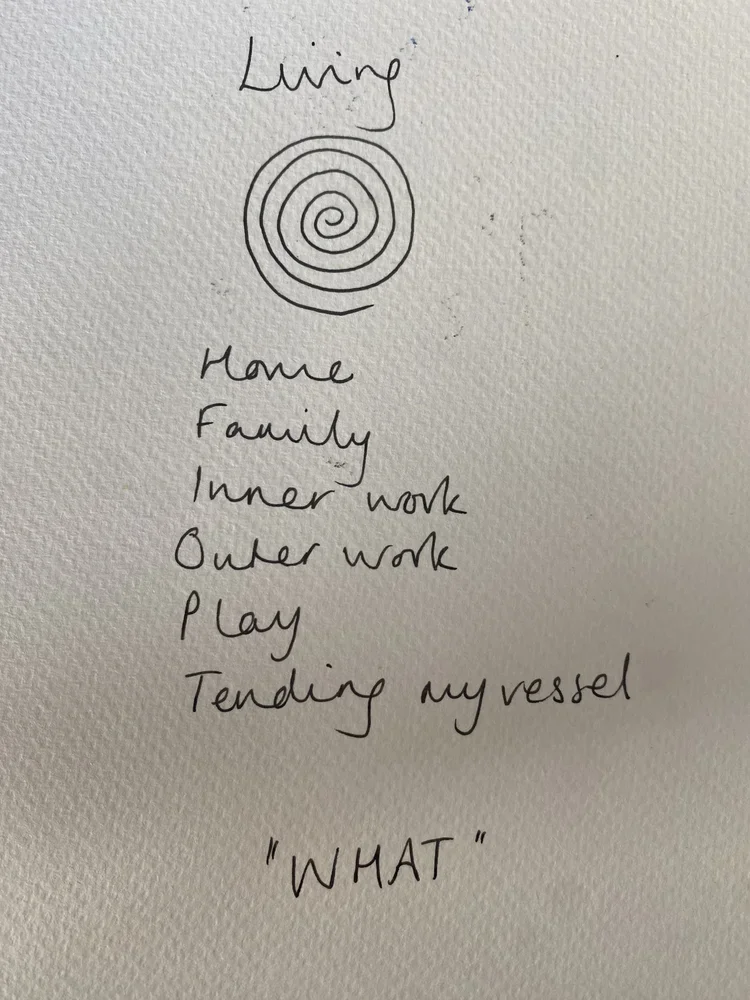 Living
Home
Family
Inner work
Outer work
Play
Tending my vessel
"WHAT"